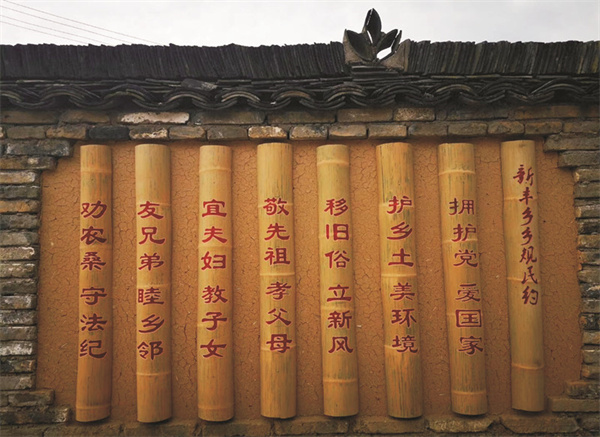 新丰乡乡规民约
拥护党 爱国家
护乡土 美环境
移旧俗 立新风
敬先祖 孝父母
宜夫妇 教子女
友兄弟 睦乡邻
劝农桑 守法纪